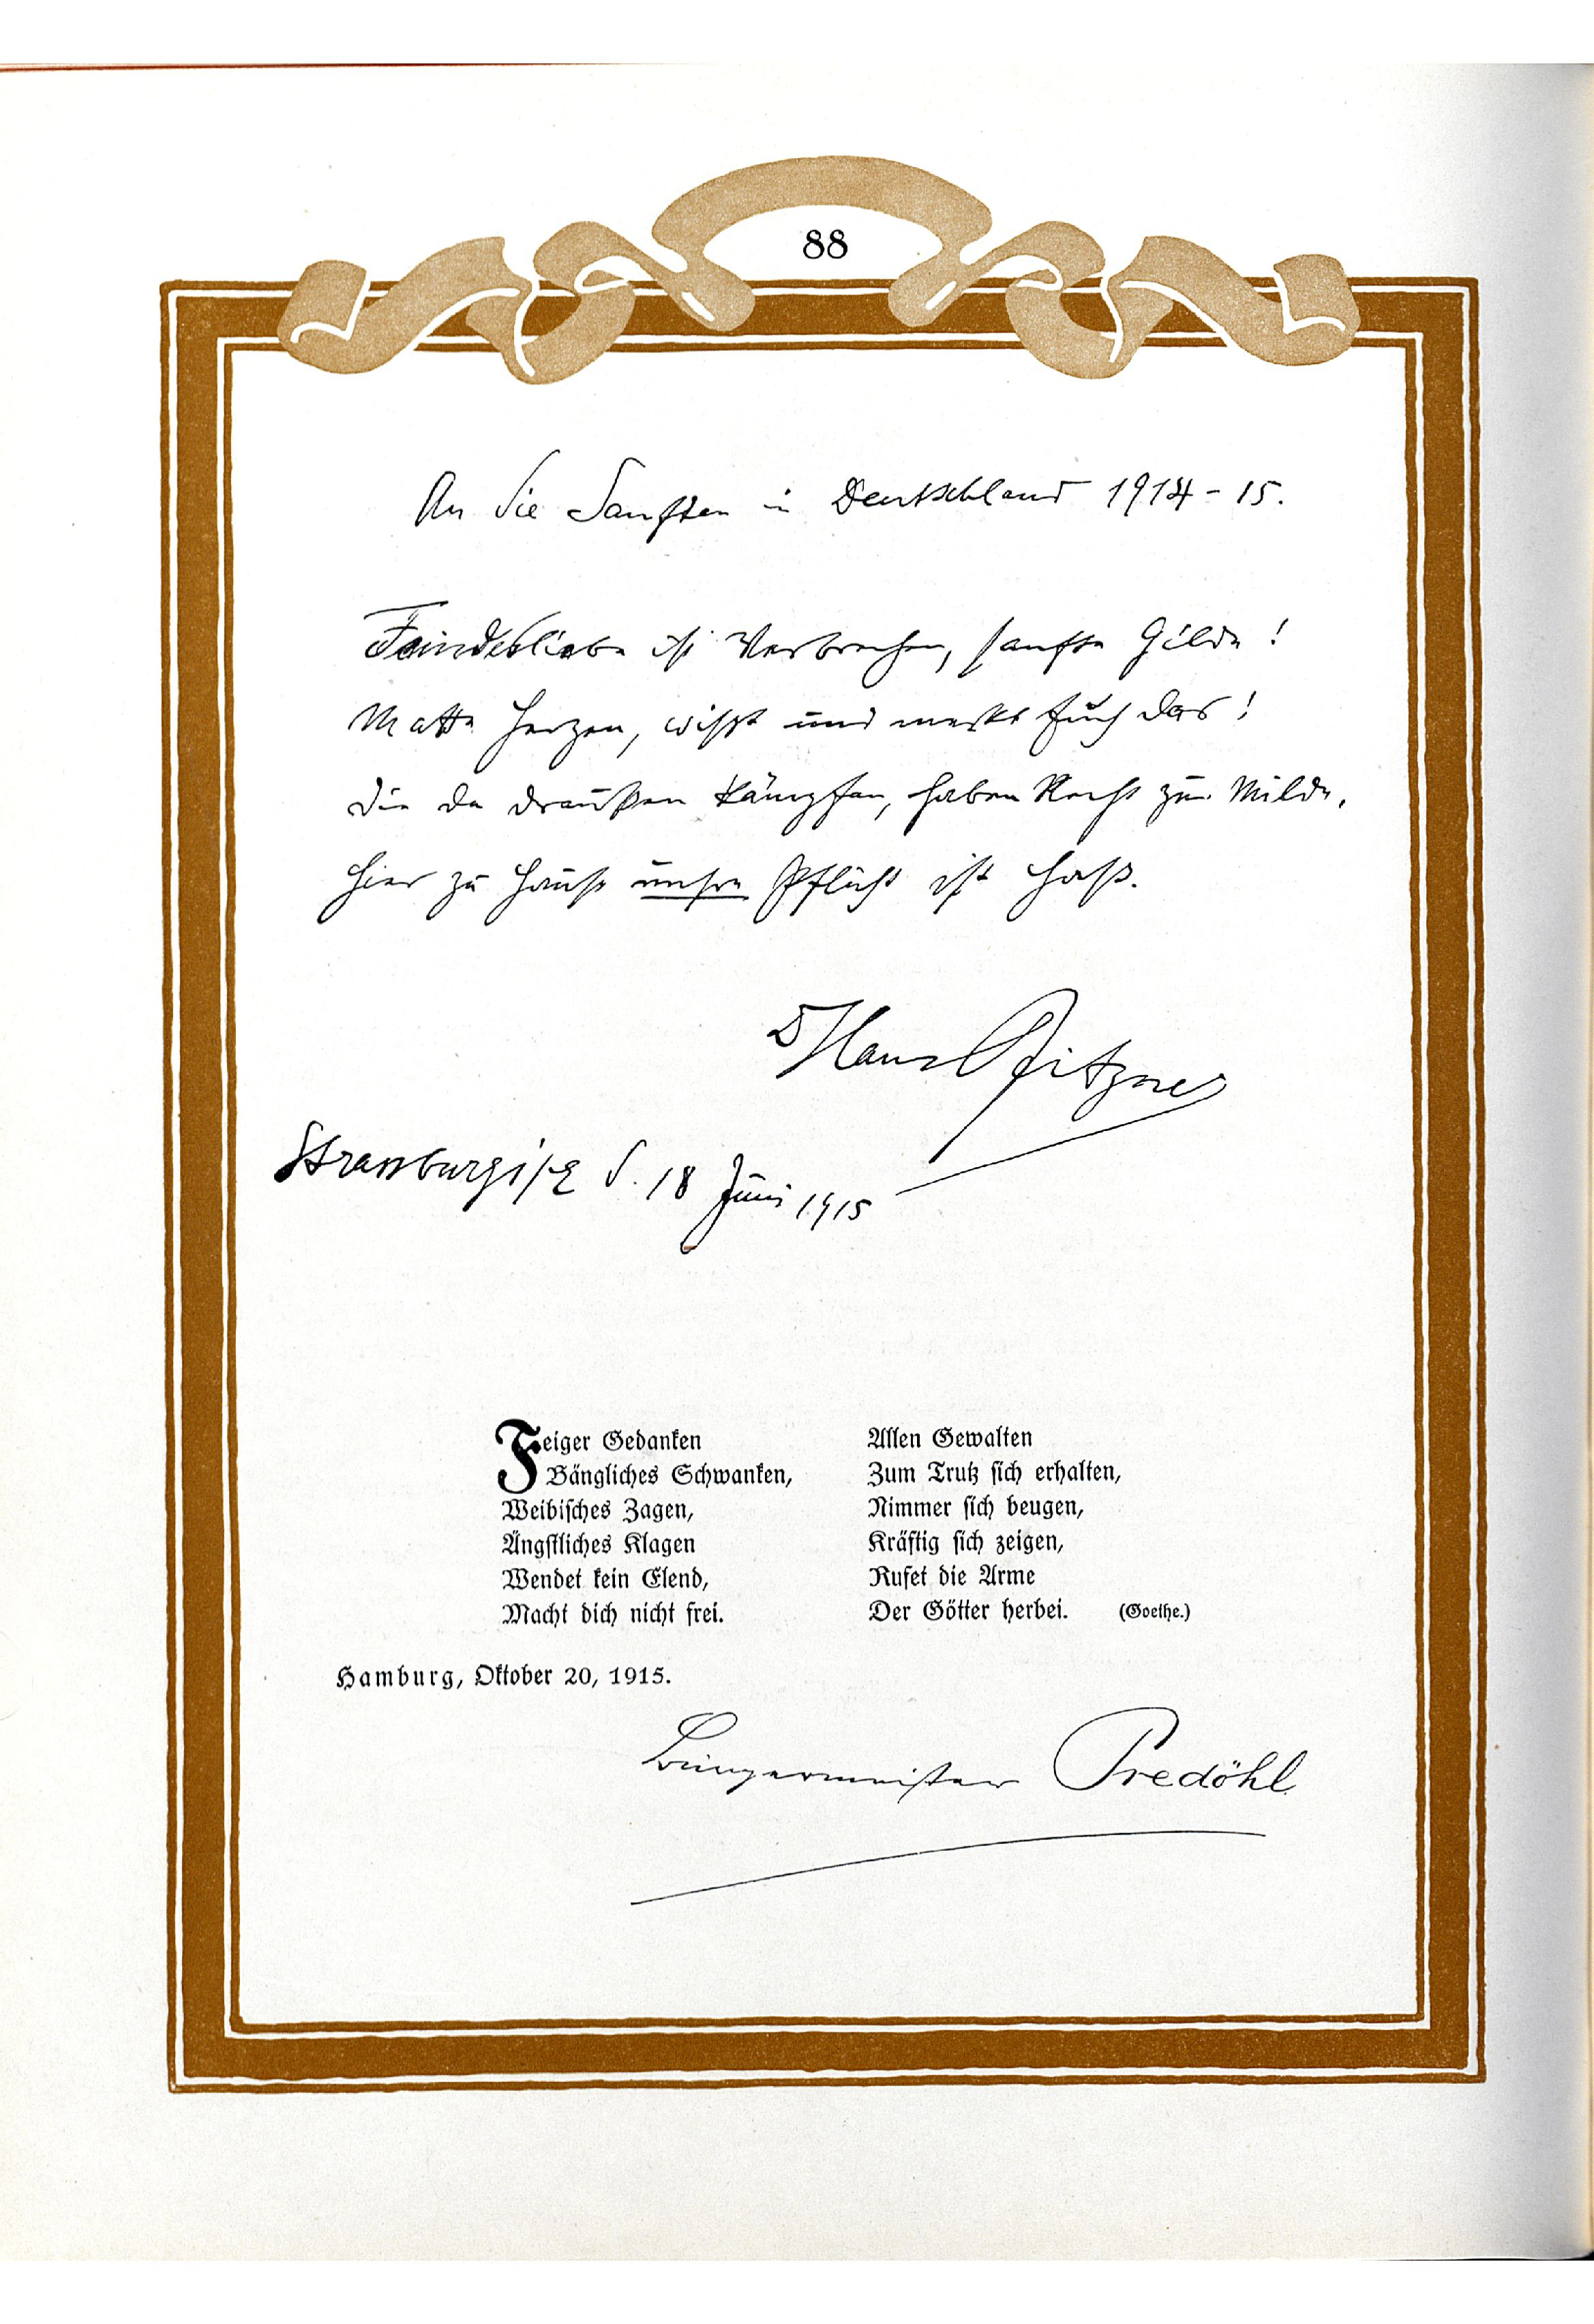 88
An die Sanften in Deutschland 1914-15.
Feindesliebe ist Verbrechen, sanfte Gilde!
Matte Herzen, wisst und merkt Euch das!
Die da draußen kämpfen, haben Recht zur Milde,
Hier zu Hause unsre Pflicht ist Haß.
D Hans Pfitzner
Strassburg i/E d. 18 Juni 1915
Feiger Gedanken
Bängliches Schwanken,
Weibisches Zagen,
Ängstliches Klagen
Wendet kein Elend,
Macht dich nicht frei.
Allen Gewalten
Zum Trutz sich erhalten,
Nimmer sich beugen,
Kräftig sich zeigen,
Rufet die Arme
Der Götter herbei. (Goethe.)
Hamburg, Oktober 20, 1915.
Bürgermeister Predöhl